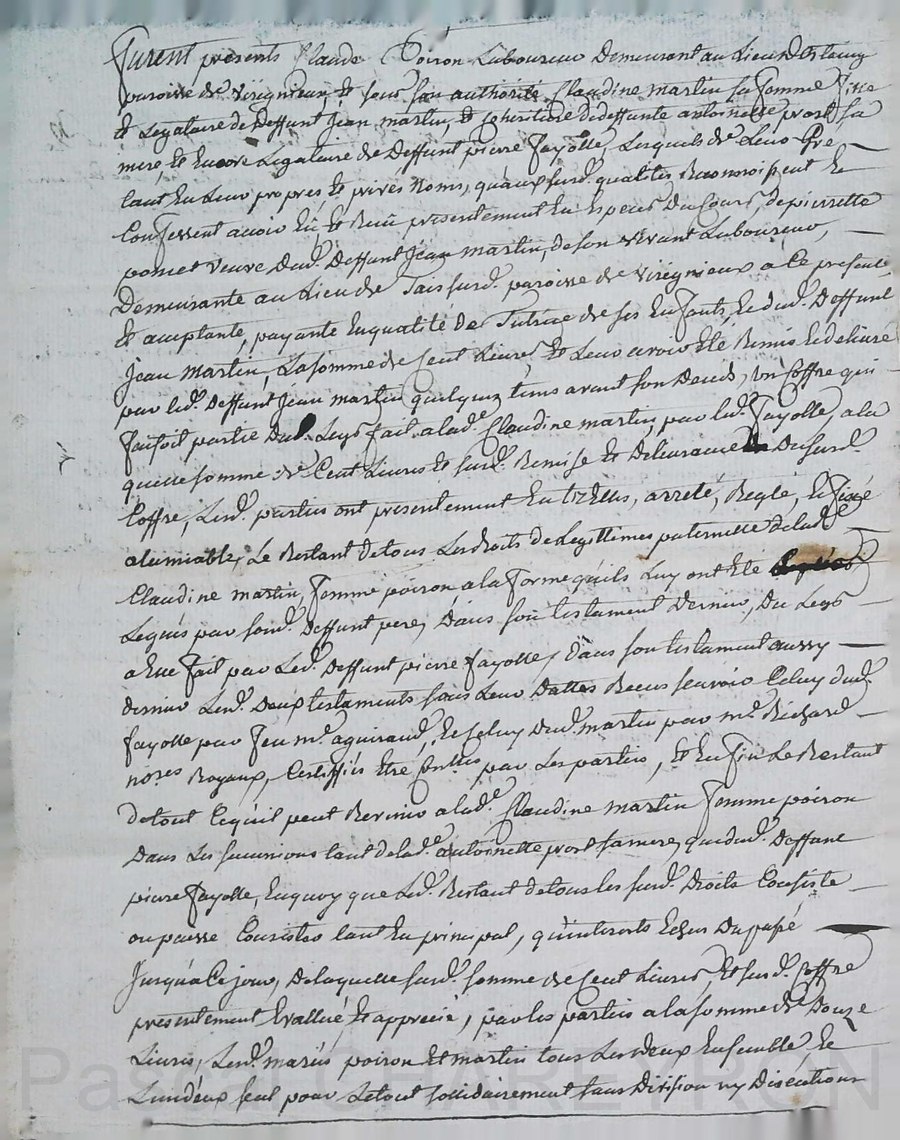 Furent presents Claude Poiron Laboureur Demeurant au Lieu
paroisse de Viregnieux, Et sous son authorité, Claudine martin sa femme fille
Et Legataire de Deffunt Jean martin, et coheritiere de deffunte antoinette prost sa
mere, Et Encore Legataire de Deffunt pierre fayolle, Lesquels de Leur Gre
tant En Leur propres Et privés noms, qu'aux surd. qualites Reconnoissent Et
Confessent avoir Eû Et Reçû presentement En Especes Du Cours, de pierrette
veuve Dud. Deffunt Jean martin, de son vivant Laboureur,
Demeurante au Lieu de surd. paroisse de Viregnieux a Ce presente
Et acceptante, payante En qualité de Tutrice de ses Enfants, Et dud. Deffunt
Jean Martin, La somme de Cent Livres, Et Leur avoir Eté Remis Et delivré
par led. Deffunt Jean martin quelques tems avant son Deceds, un Coffre qui
faisoit partie Du Legs fait a lad.e Claudine martin, par led. fayolle, a la
quelle somme de Cent Livres Et surd. Remise Et Delivrance Dusurd.
Coffre, Lesd. parties ont presentement Entr'Elles, arreté, Reglé, Et fixé
alamiable, Le Restant de tous Les droits de Legittimes paternelle de lad.e
Claudine martin, femme poiron a la forme qu'ils Luy ont Eté
Legués par sond. Deffunt pere, Dans son testament Dernier, Du Legs
a Elle fait par Led. Deffunt pierre fayolle, dans son testament aussy
dernier Lesd. Deux testaments sous Leur Dattes Recus scavoir Celuy dud.
fayolle par feu m.e aguiraud, Et Celuy Dud. martin par m.e Richard
no.res Royaux, Certiffiés Etre Con.llés par Les parties, Et En fin Le Restant
de tout Ce qu'il peut Revenir a lad.e Claudine martin femme poiron
Dans Les successions tant de lad.e antoinette prost sa mere, que dud. Deffunt
pierre fayolle, En quoy que Led. Restant de tous les surd. Droits Consiste
ou puisse Consister tant En principal, qu'interets Echus Du passé
Jusqu'a Ce jour, De laquelle surd. somme de Cent Livres, Et surd. Coffre
presentement Evallué Et apprecié, par les parties a la somme de Douze
Livres, Lesd. mariés poiron Et martin tous Les deux Ensemble, Et
L'un d'eux seul pour Le tout sollidairement sans Division ny Discution
Pascal CHARETRON